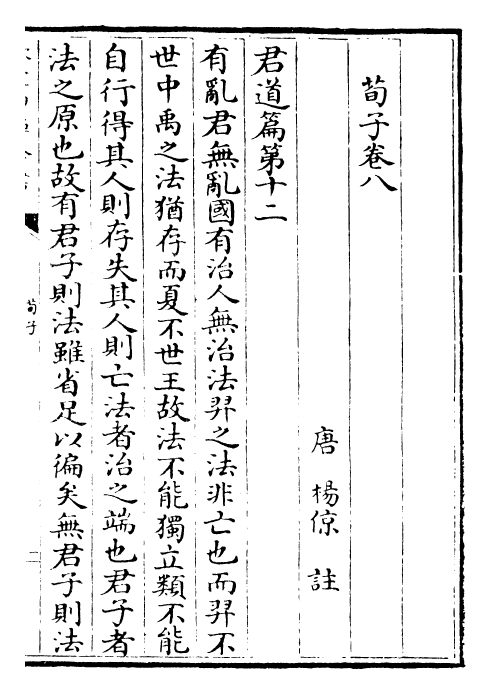 荀子卷八
唐 楊倞 註
君道篇第十二
有亂君無亂國有治人無治法羿之法非亡也而羿不
世中禹之法猶存而夏不世王故法不能獨立類不能
自行得其人則存失其人則亡法者治之端也君子者
法之原也故有君子則法雖省足以徧矣無君子則法
荀子
二